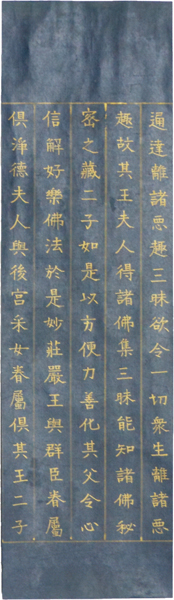 通達離諸惡趣三昧欲令一切衆生離諸惡
趣故其王夫人得諸佛集三昧能知諸佛秘
密之藏二子如是以方便力善化其父令心
信解好樂佛法於是妙莊嚴王與群臣眷屬
俱淨德夫人與後宮采女眷屬俱其王二子